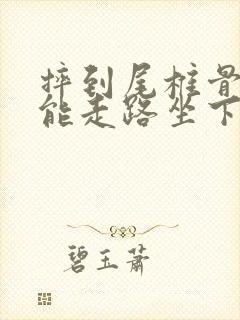 摔到尾椎骨
能走路坐下
碧玉萧